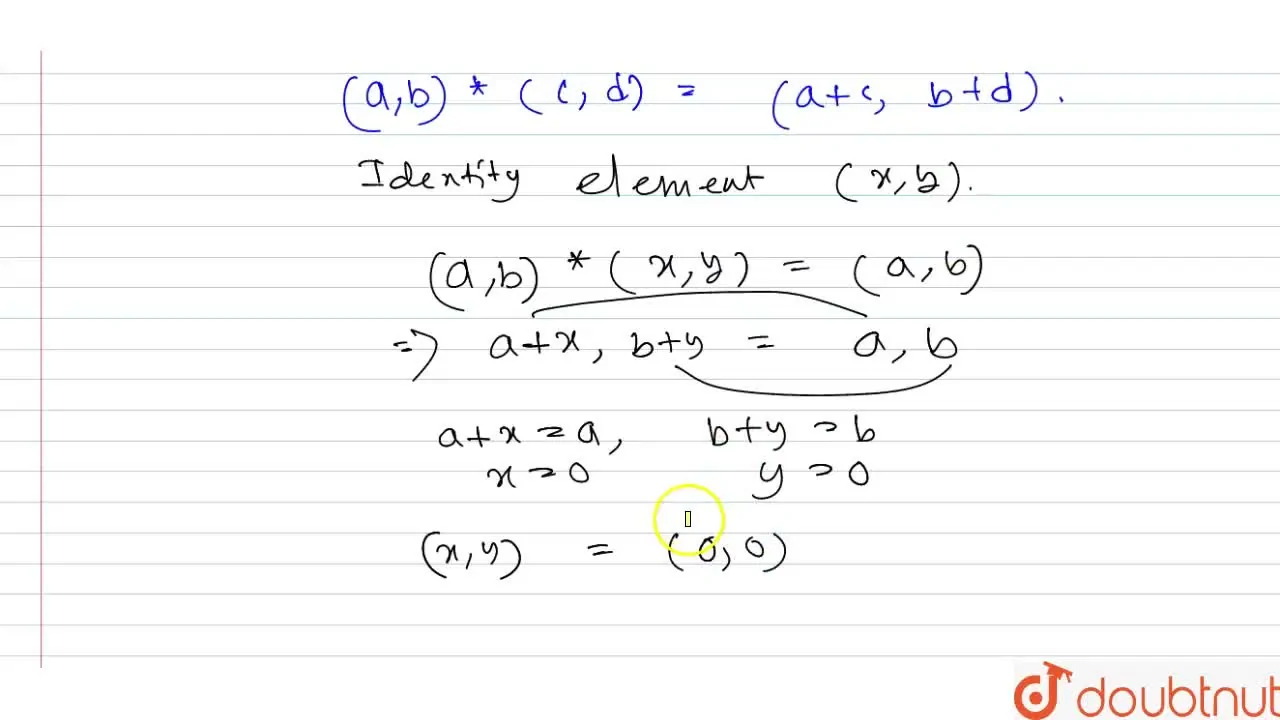 (a,b) * (c, d) = (a+c, b+d).
Identity element (x,y).
(a,b) * (x,y) = (a,b)
=> a+x, b+y = a, b
a+x=a, b+y=b
x=0 y=0
(x,y) = (0,0)
doubtnut